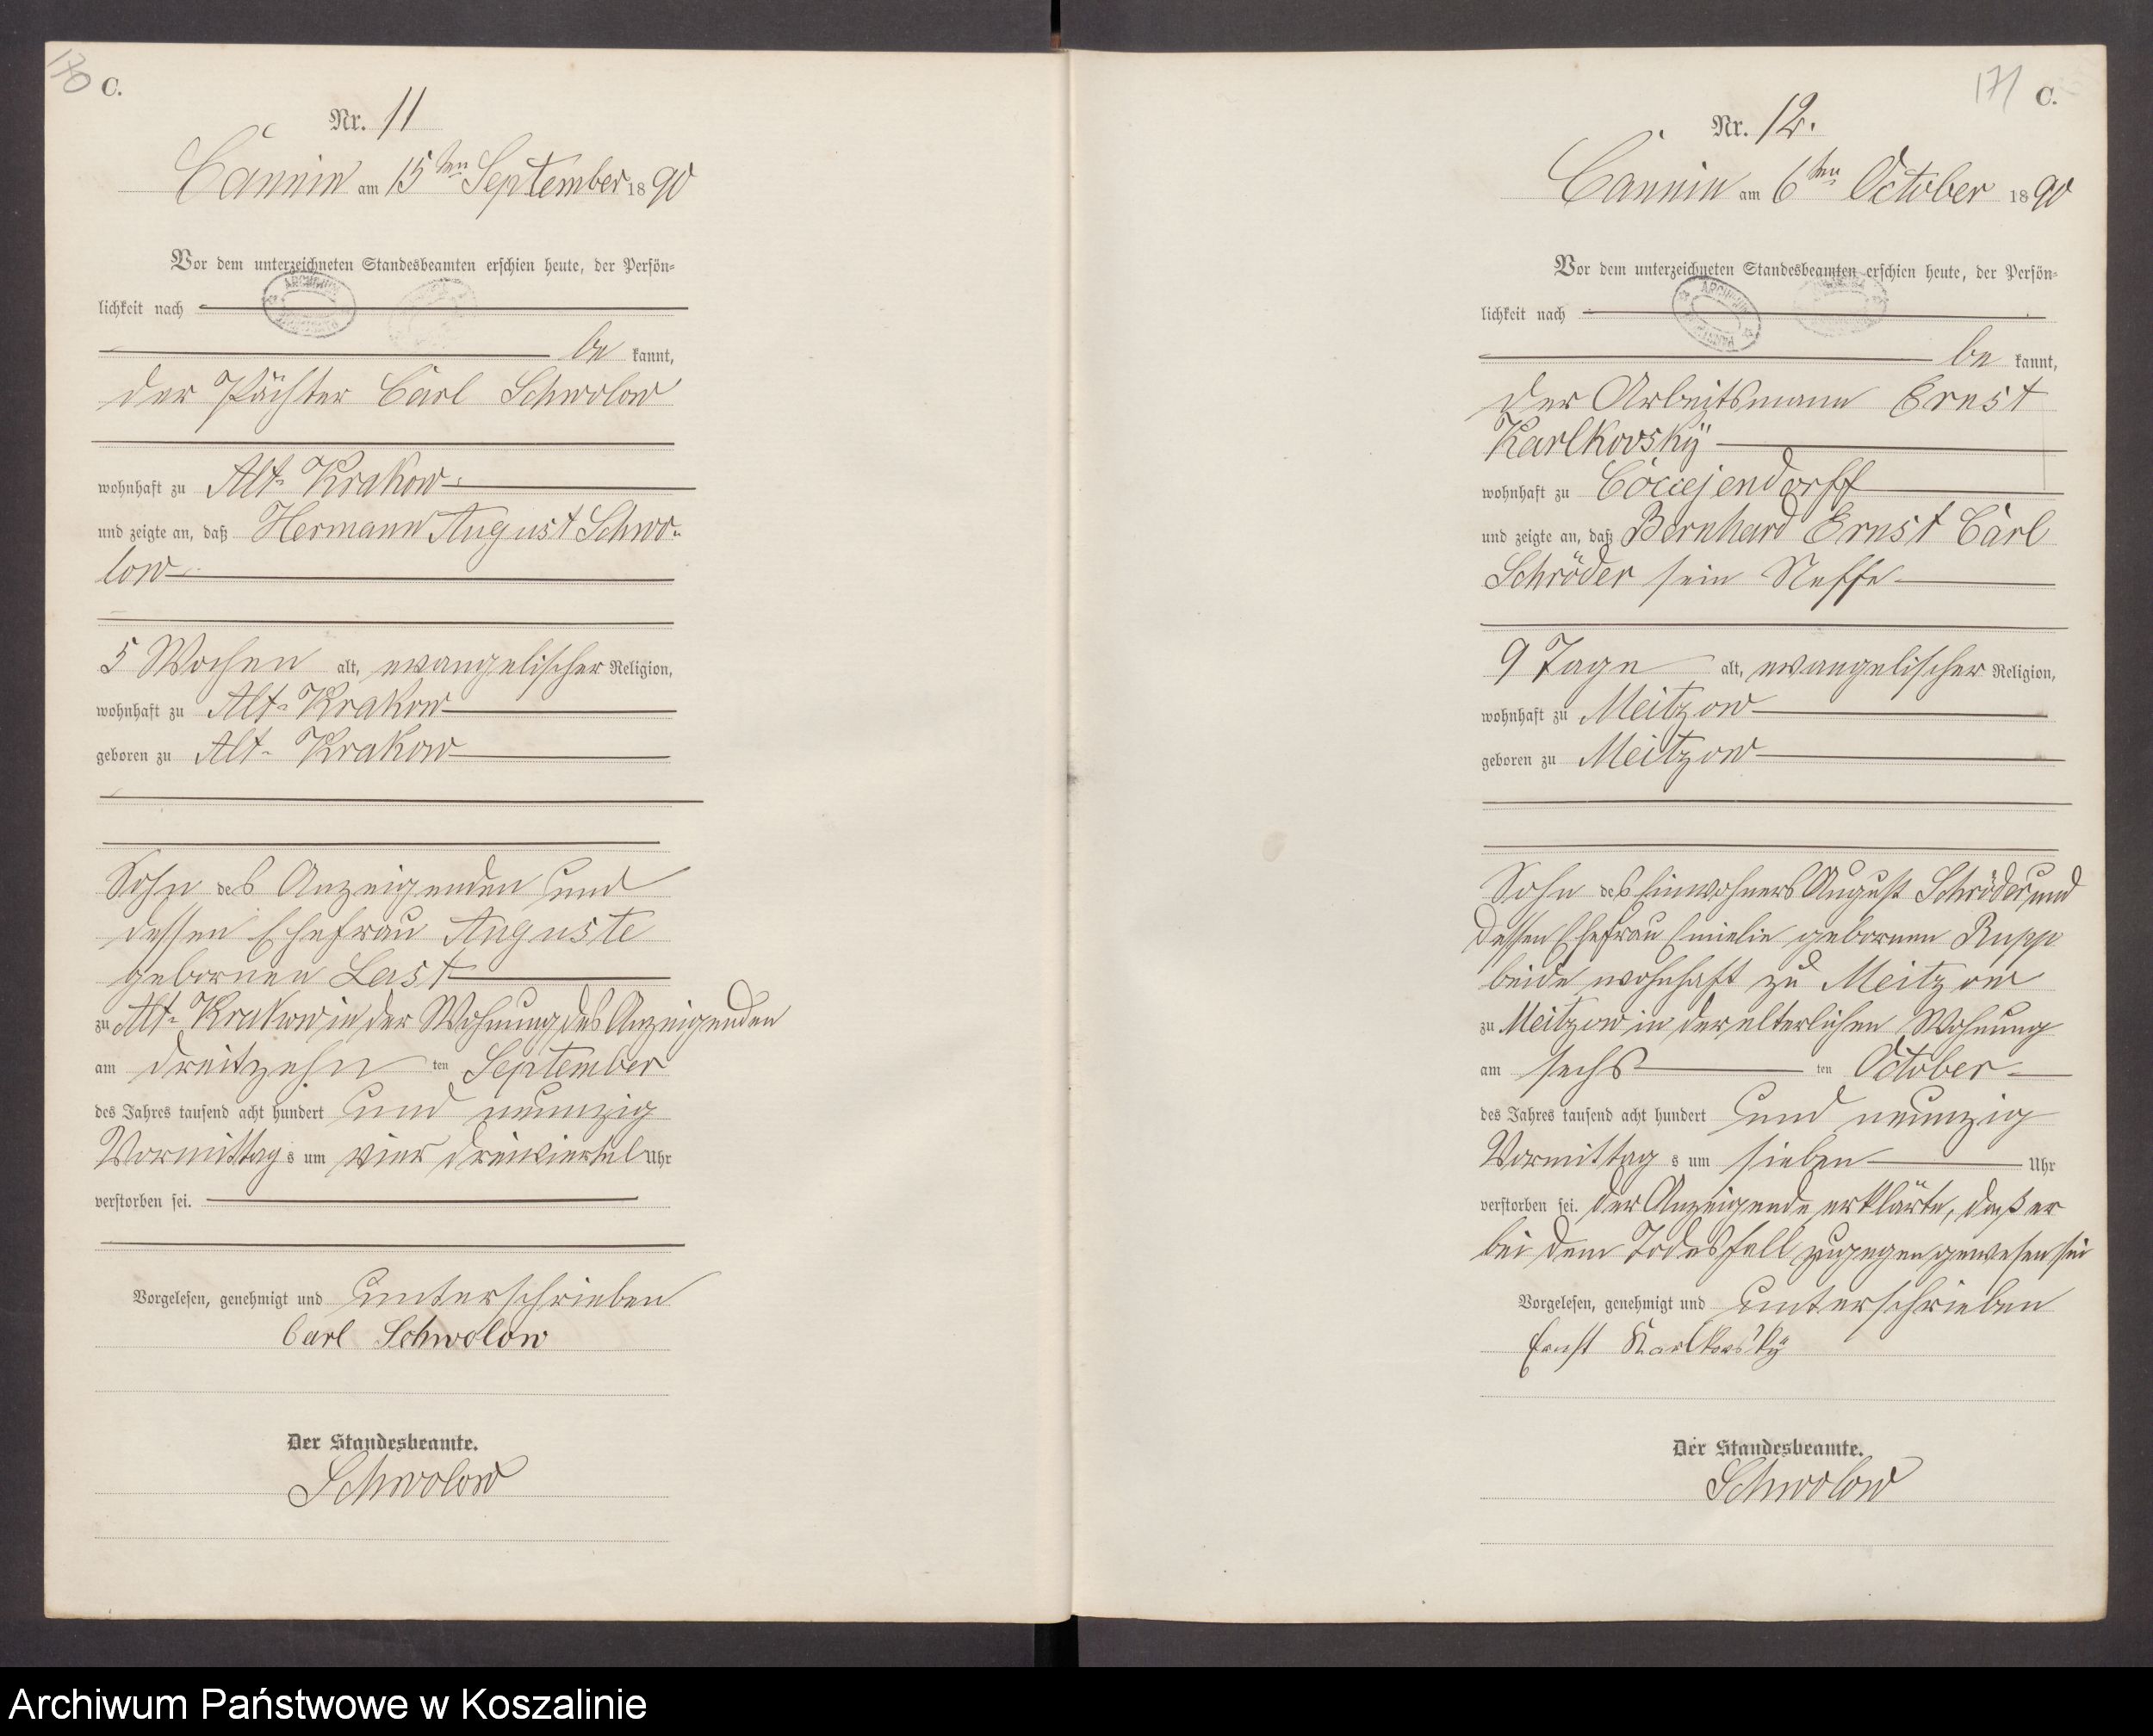 170 C.
Nr. 11
Cannin am 15ten September 1890
Vor dem unterzeichneten Standesbeamten erschien heute, der Persön-
lichkeit nach
be kannt,
der Pächter Carl Schwolow
wohnhaft zu Alt-Krakow
und zeigte an, daß Hermann August Schwo-
low
5 Wochen alt, evangelischer Religion,
wohnhaft zu Alt-Krakow
geboren zu Alt-Krakow
Sohn des Anzeigenden und
dessen Ehefrau Auguste
gebornen Last
zu Alt-Krakow in der Wohnung des Anzeigenden
am dreitzehn ten September
des Jahres tausend acht hundert und neunzig
Vormittag s um vier dreiviertel Uhr
verstorben sei.
Vorgelesen, genehmigt und unterschrieben
Carl Schwolow
Der Standesbeamte.
Schwolow
171 C.
Nr. 12.
Cannin am 6ten October 1890
Vor dem unterzeichneten Standesbeamten erschien heute, der Persön-
lichkeit nach
be kannt,
der Arbeitsmann Ernst
Karlkovsky
wohnhaft zu Coccejendorff
und zeigte an, daß Bernhard Ernst Carl
Schröder sein Neffe
9 Tage alt, evangelischer Religion,
wohnhaft zu Meitzow
geboren zu Meitzow
Sohn des Einwohners August Schröder und
dessen Ehefrau Emielie gebornen Rupp
beide wohnhaft zu Meitzow
zu Meitzow in der elterlichen Wohnung
am sechs ten October
des Jahres tausend acht hundert und neunzig
Vormittag s um sieben Uhr
verstorben sei. Der Anzeigende erklärte, daß er
bei dem Todesfall zugegen gewesen sei
Vorgelesen, genehmigt und unterschrieben
Ernst Karlkovsky
Der Standesbeamte.
Schwolow
Archiwum Państwowe w Koszalinie